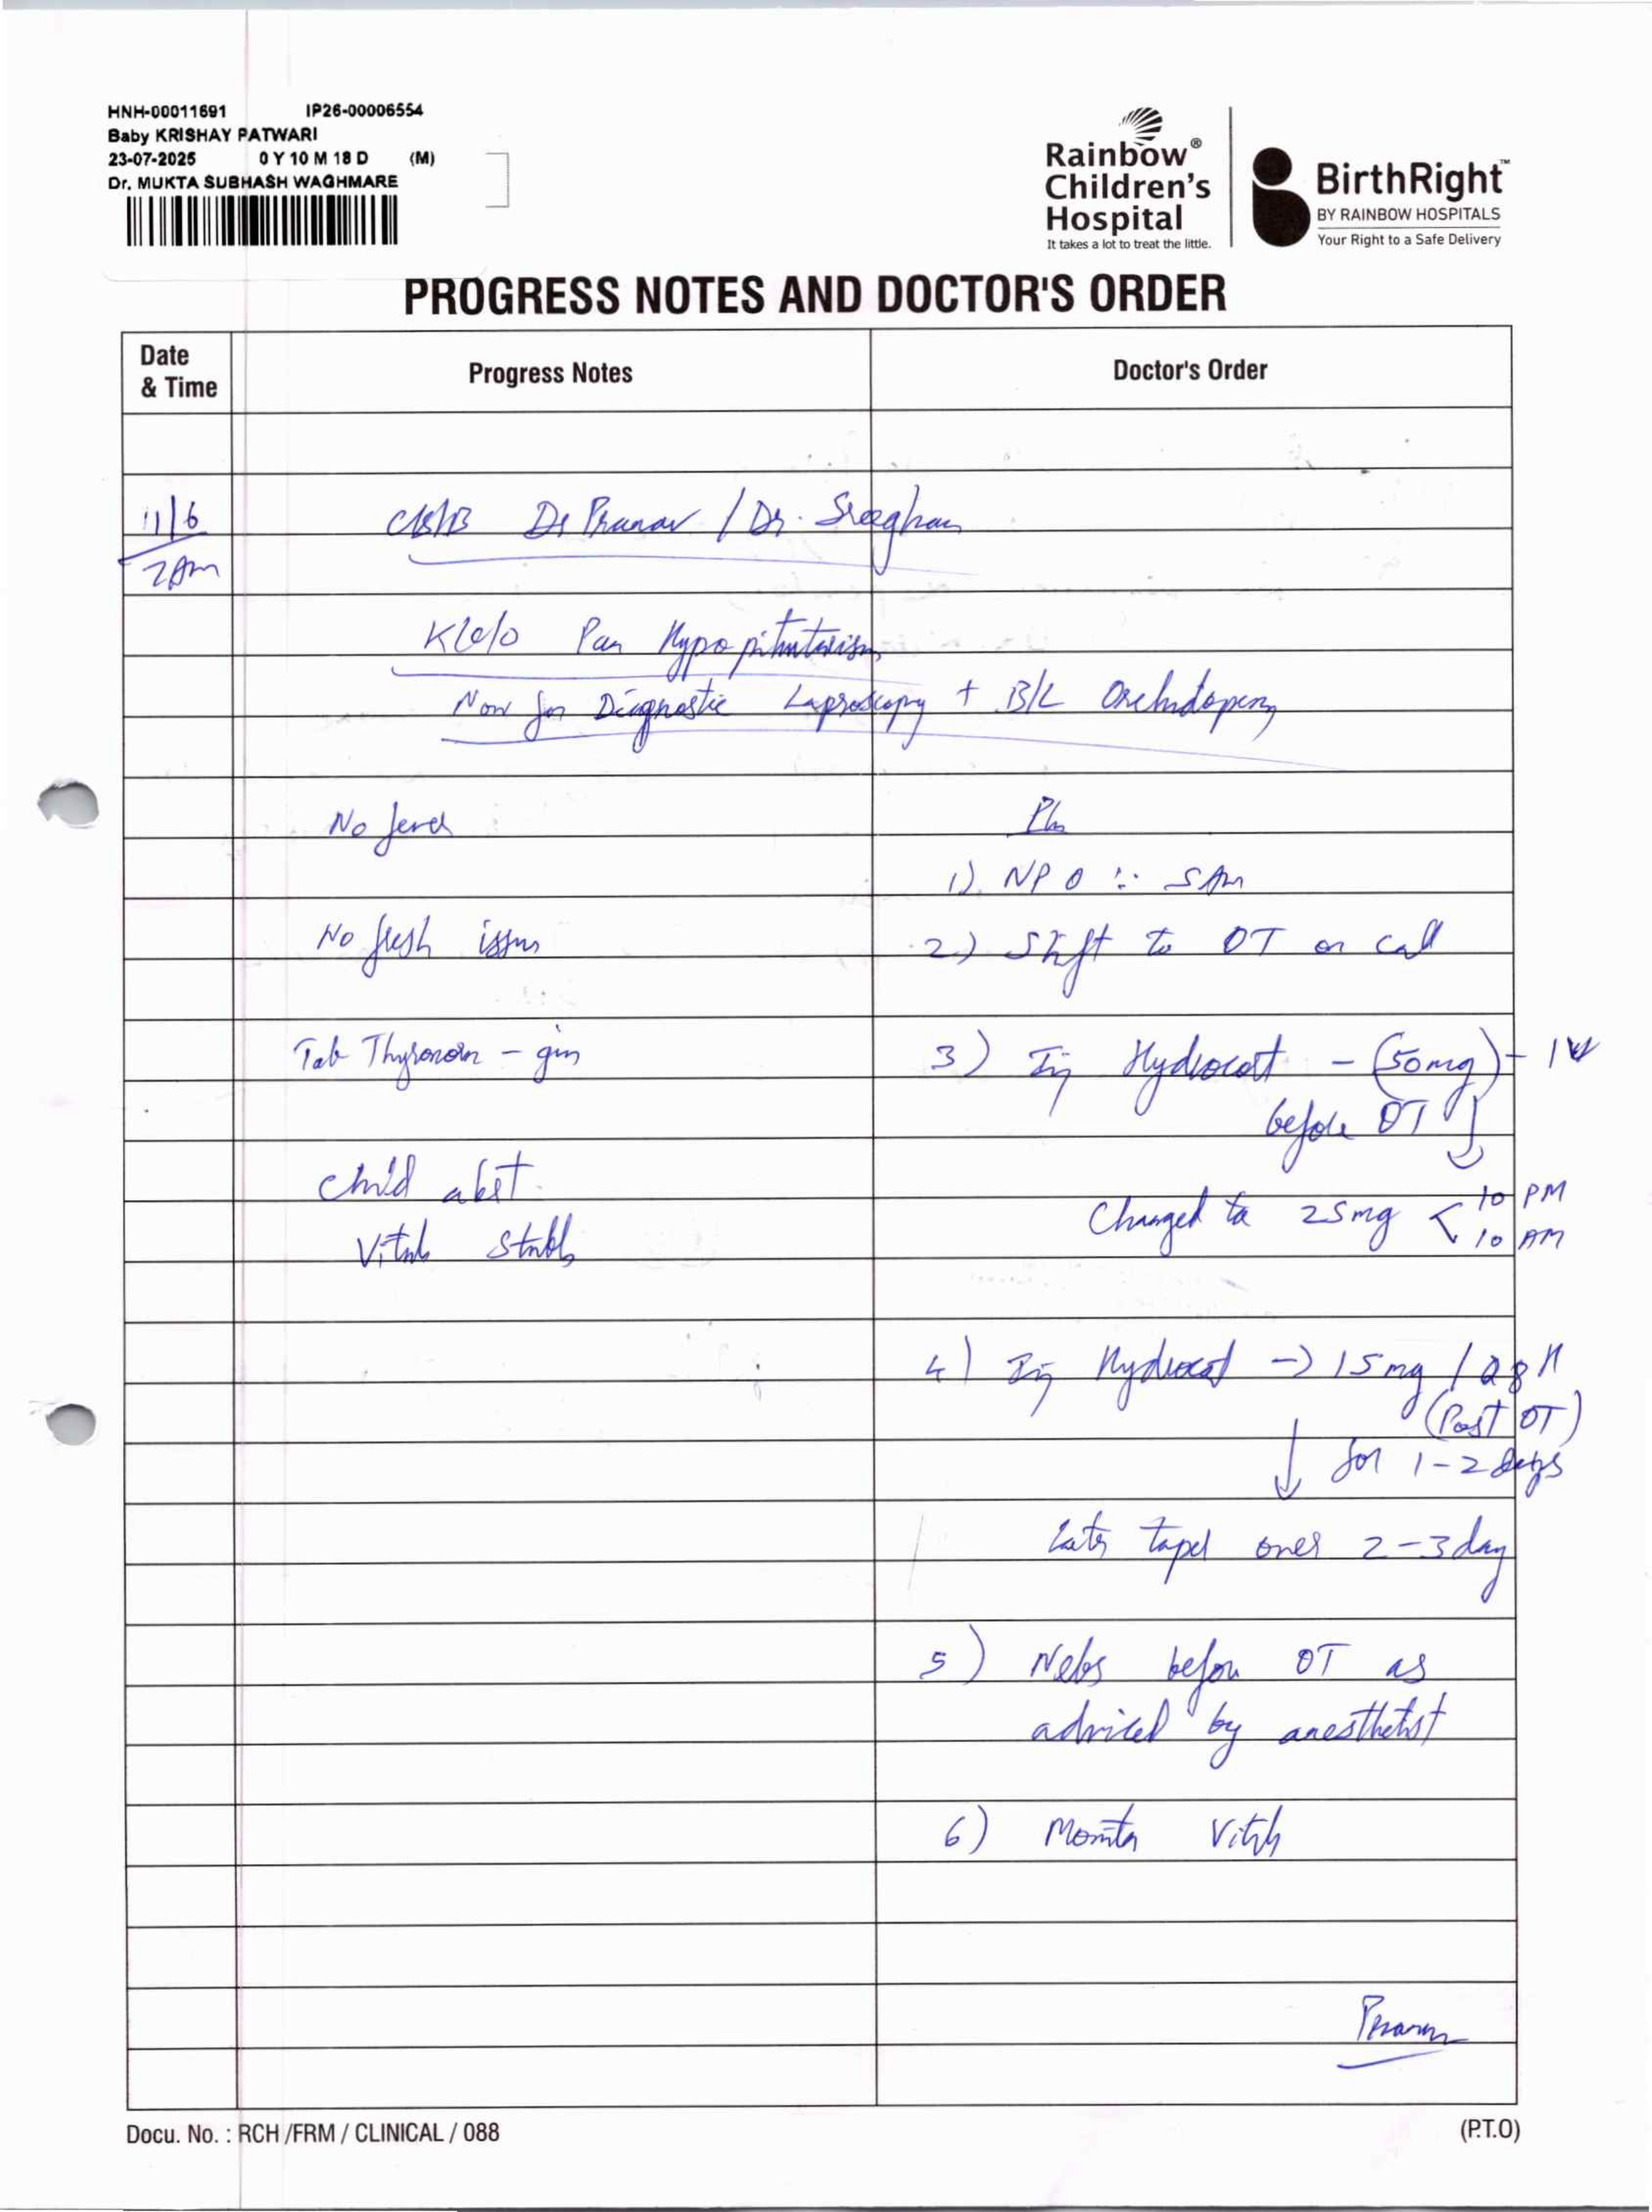 HNH-00011691 IP26-00006554
Baby KRISHAY PATWARI
23-07-2025 0 Y 10 M 18 D (M)
Dr. MUKTA SUBHASH WAGHMARE
Rainbow®
Children's
Hospital
It takes a lot to treat the little.
BirthRight™
BY RAINBOW HOSPITALS
Your Right to a Safe Delivery
PROGRESS NOTES AND DOCTOR'S ORDER
Date & Time
Progress Notes
Doctor's Order
11/6
2Am
C/S/B Dr Pranav / Dr.
K/c/o Pan Hypopituitarism
Now for Diagnostic Laproscopy + B/L
No fever
No fresh issues
Tab - given
Child
Vitals stable
Plan
1) NPO 5Am
2) Shift to OT on call
3) Inj Hydrocort - (50mg) - IV
before OT
Changed to 25mg < 10 PM
10 AM
4) Inj Hydrocort → 15mg / Q8H
(Post OT)
↓ for 1-2 days
Later taper over 2-3 day
5) Nebs before OT as
adviced by anesthetist
6) Monitor Vitals
Pranav
Docu. No. : RCH /FRM / CLINICAL / 088
(P.T.O)